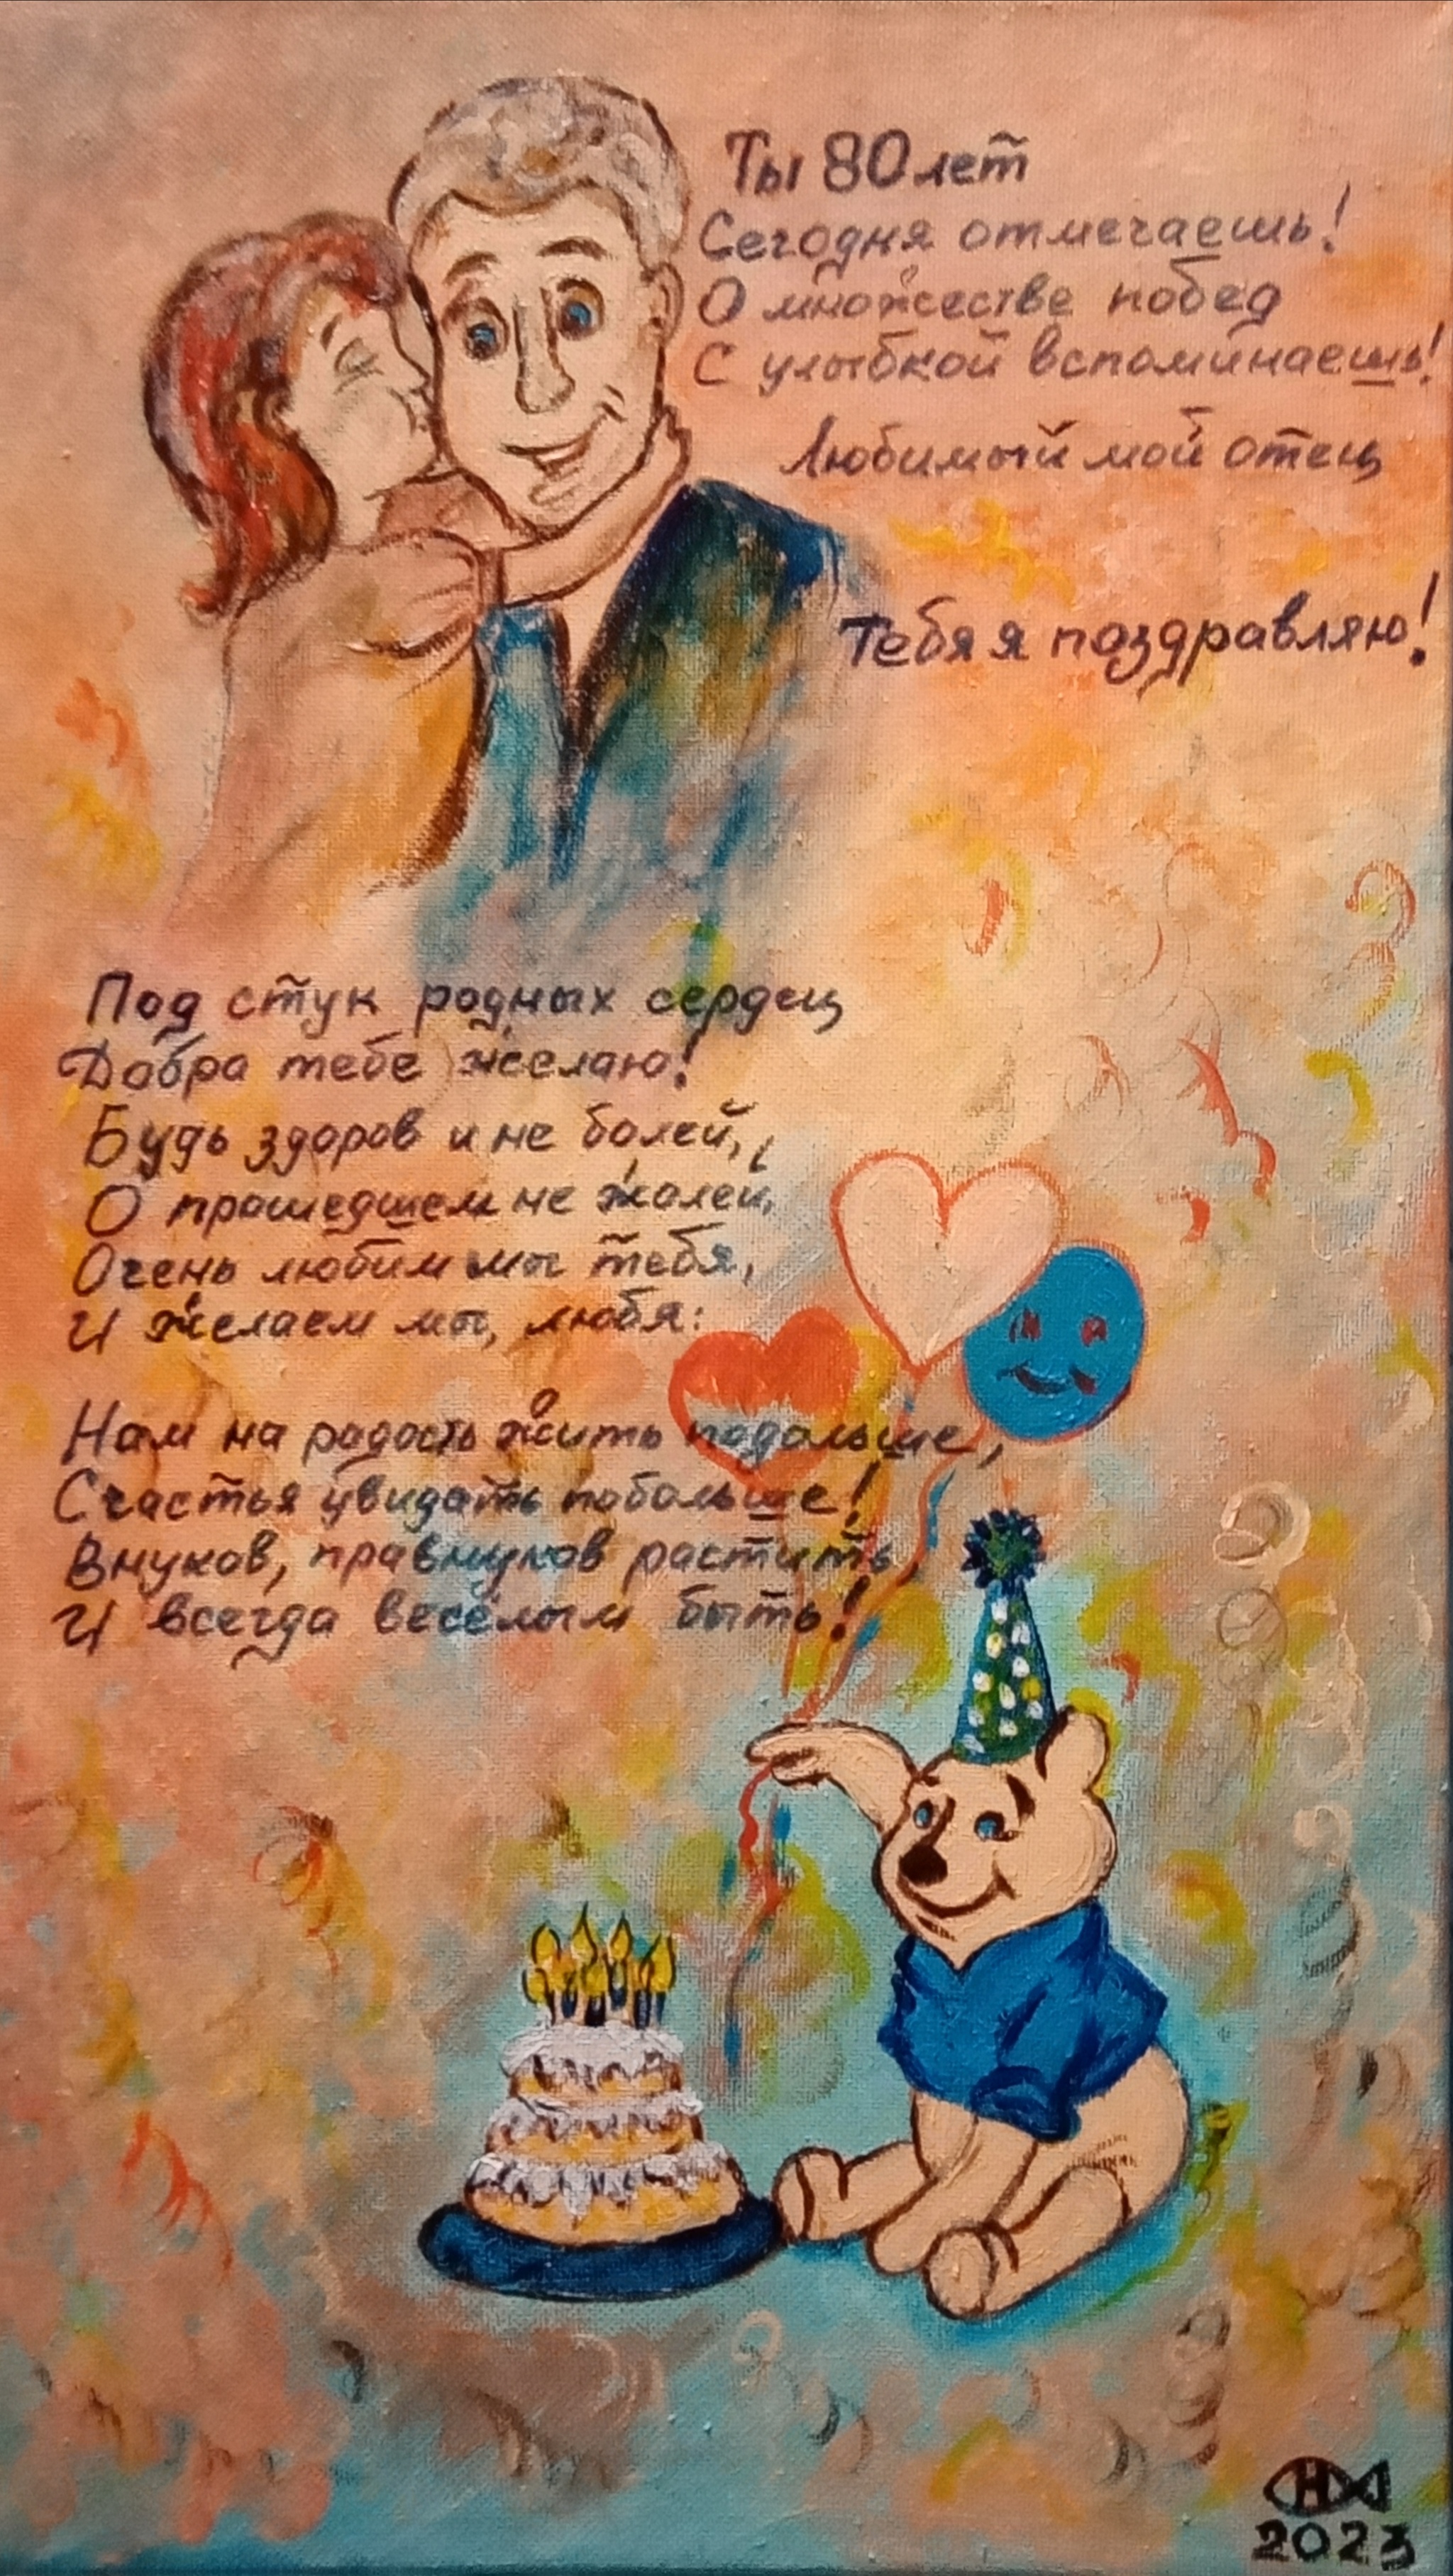 Ты 80 лет
Сегодня отмечаешь!
О множестве побед
С улыбкой вспоминаешь!
Любимый мой отец
Тебя я поздравляю!
Под стук родных сердец
Добра тебе желаю!
Будь здоров и не болей,
О прошедшем не жалей,
Очень любим мы тебя,
И желаем мы, любя:
Нам на радость жить подольше,
Счастья увидать побольше!
Внуков, правнуков растить
И всегда весёлым быть!
Н
2023